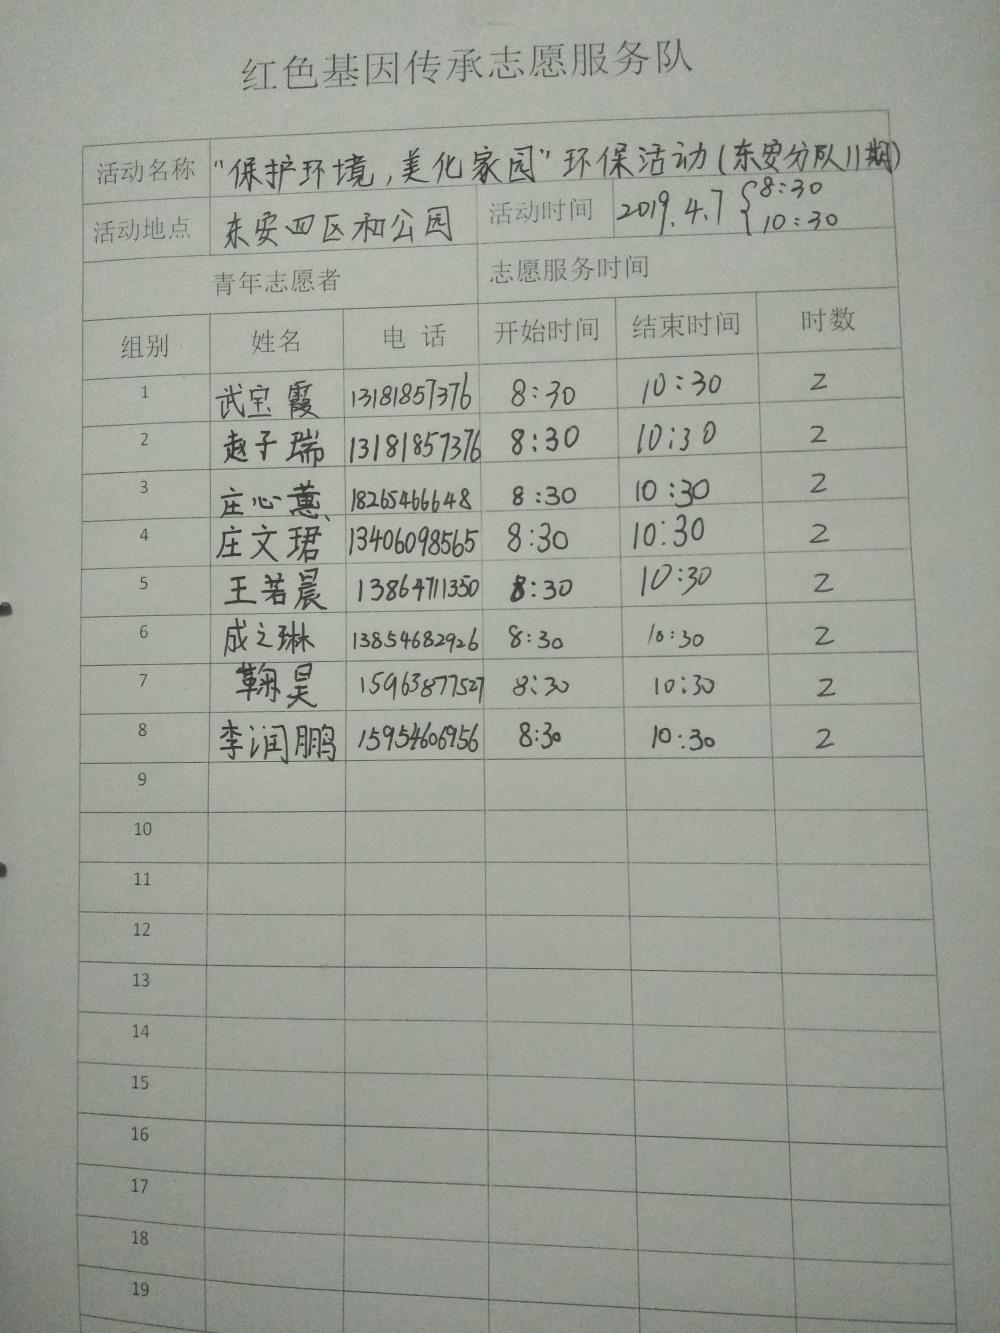 红色基因传承志愿服务队
活动名称 “保护环境,美化家园”环保活动(东安分队11期)
活动地点 东安四区和公园 活动时间 2019.4.7 {8:30 10:30
青年志愿者 志愿服务时间
组别 姓名 电话 开始时间 结束时间 时数
1 武宝霞 13181857376 8:30 10:30 2
2 赵子瑞 13181857376 8:30 10:30 2
3 庄心蕙 18265466648 8:30 10:30 2
4 庄文珺 13406098565 8:30 10:30 2
5 王若晨 13864711350 8:30 10:30 2
6 成之琳 13854682926 8:30 10:30 2
7 鞠昊 15963877527 8:30 10:30 2
8 李润鹏 15954606956 8:30 10:30 2
9
10
11
12
13
14
15
16
17
18
19